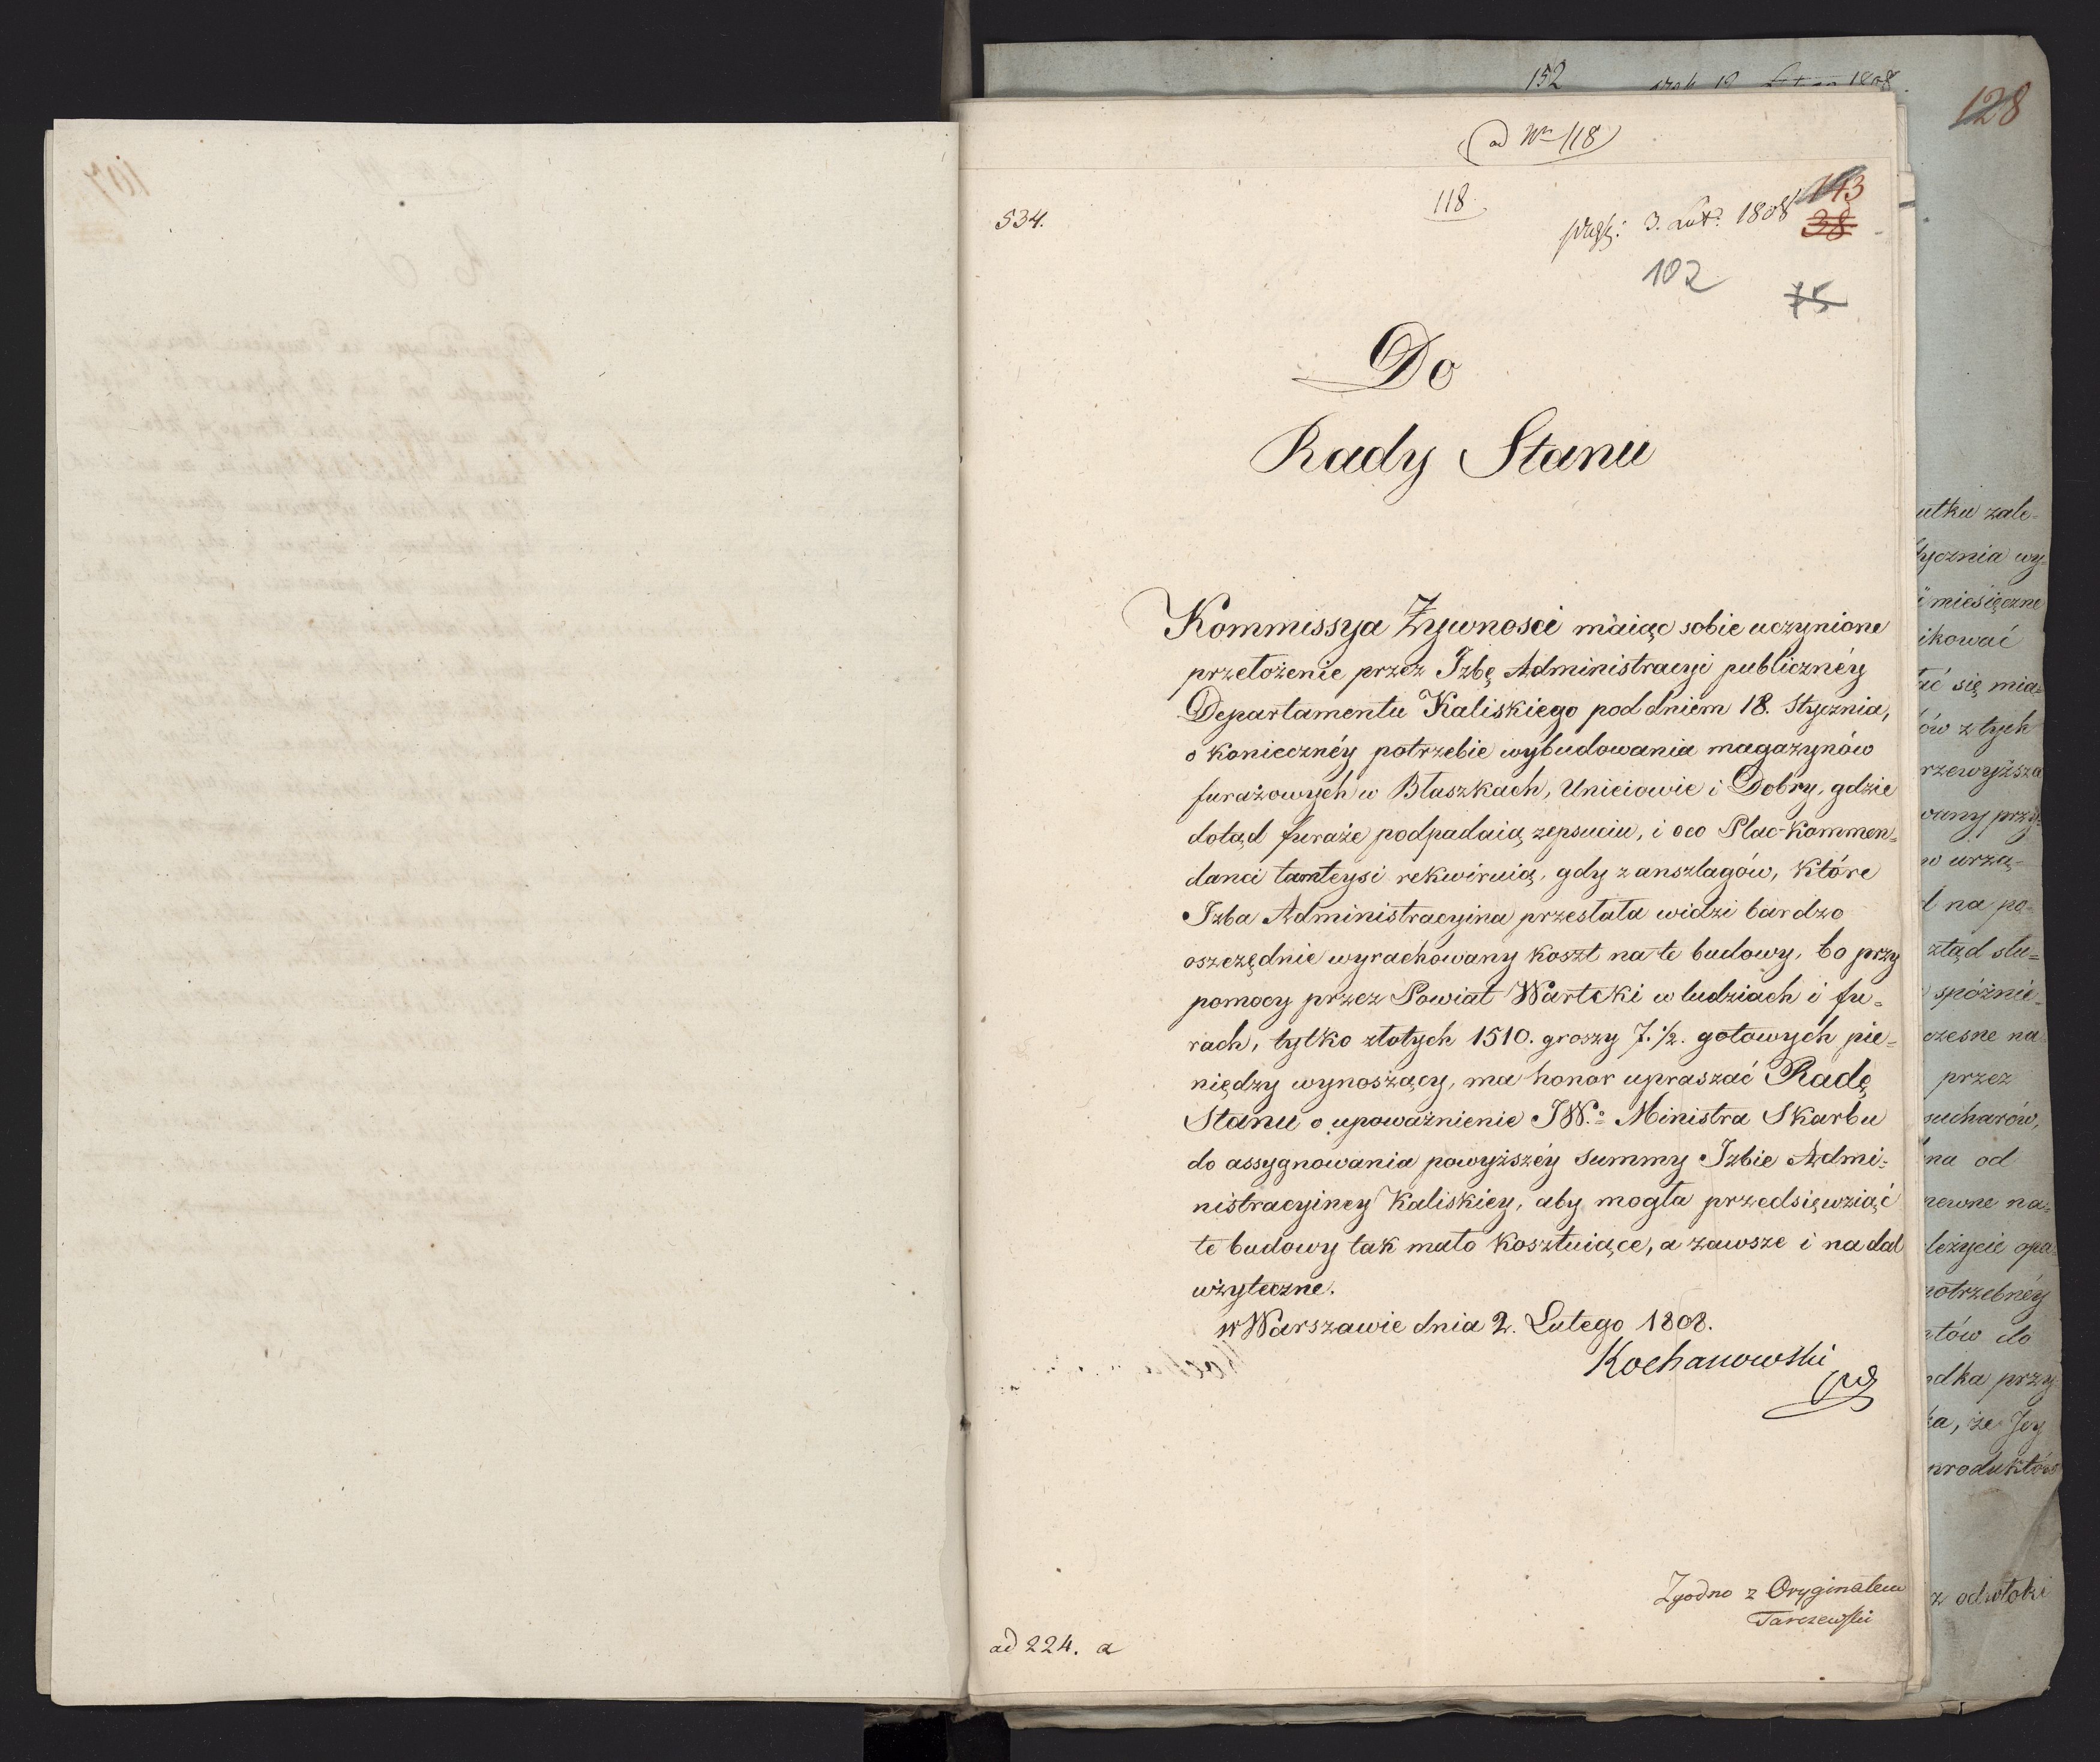 152
128
ad Nr 118
118
534.
3. Lut. 1808
143
38
102
75
Do
Rady Stanu
Kommissya Żywnosci maiąc sobie uczynione
przełożenie przez Izbę Administracyi publicznéy
Departamentu Kaliskiego pod dniem 18. Stycznia,
o koniecznéy potrzebie wybudowania magazynów
furażowych w Błaszkach, Uniciowie i Dobry, gdzie
dotąd furaże podpadaią zepsuciu, i oco Plac-Kommen=
danci tamteysi rekwiruią, gdy z anszlagów, które
Izba Administracyina przesłała widzi bardzo
oszczędnie wyrachowany koszt na te budowy, bo przy
pomocy przez Powiat Wartski w ludziach i fu=
rach, tylko złotych 1510. groszy 7.½. gotowych pie=
niędzy wynoszący, ma honor upraszać Radę
Stanu o upoważnienie JW.º Ministra Skarbu
do assygnowania powyższéy Summy Izbie Admi=
nistracyiney Kaliskiey, aby mogła przedsięwziąć
te budowy tak mało kosztuiące, a zawsze i nadal
użyteczne.
w Warszawie dnia 2. Lutego 1808.
Kochanowski
Zgodno z Oryginałem
Tarczewski
ad 224. a
utku zale=
tycznia wy=
miesięczne
ikować
ać się mia=
ów z tych
rzewyższa
wany przy=
w urzą=
ł na po=
ztąd słu=
spóźnie=
czesne na
przez
sucharów,
na od
newne na=
leżycie opa=
potrzebnéy
tów do
dka przy
ka, że Jey
produktów
z odwłoki